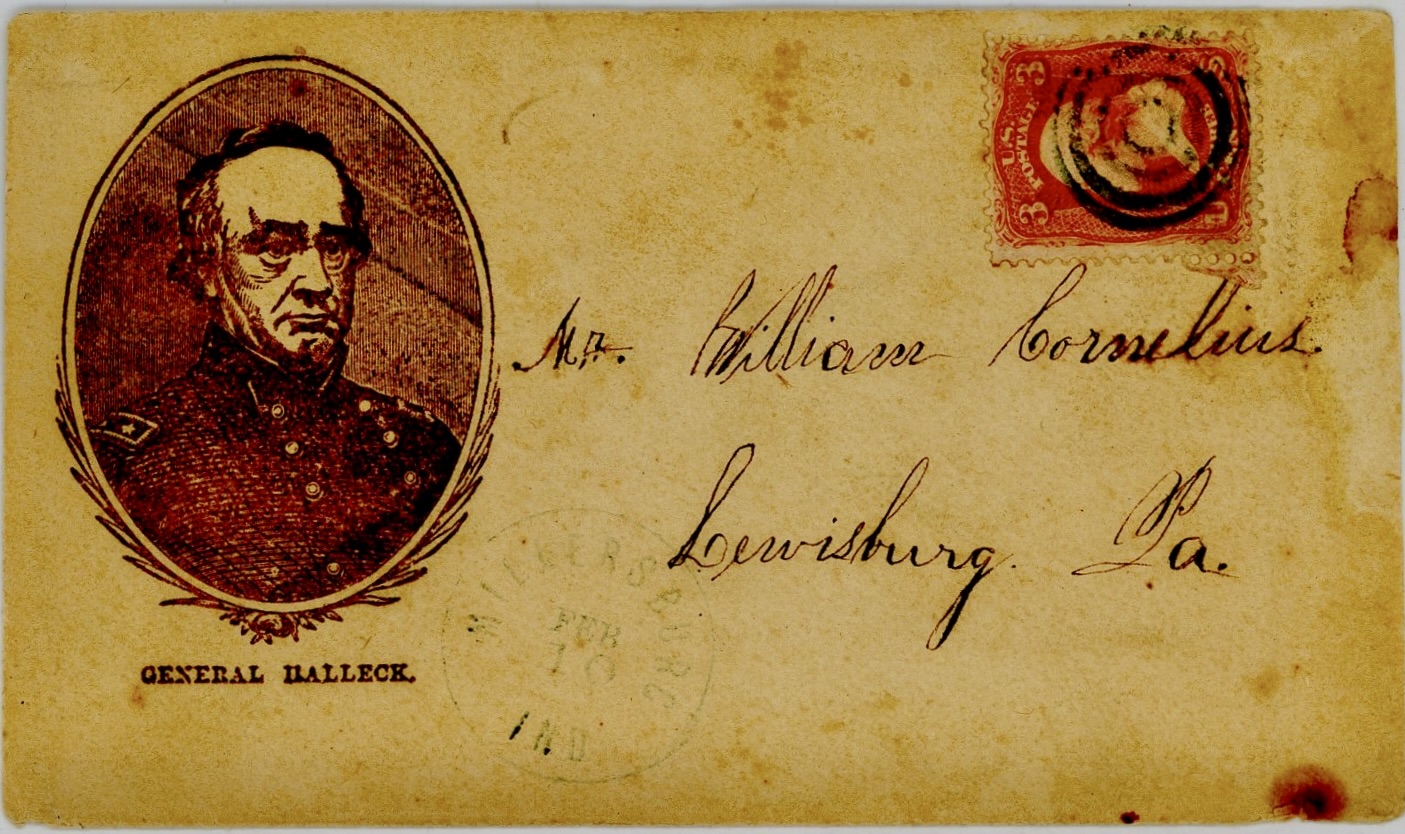 3 U.S. POSTAGE 3
Mr. William Cornelius.
Lewisburg. Pa.
GENERAL HALLECK.
MILLERSBURG
FEB
10
IND